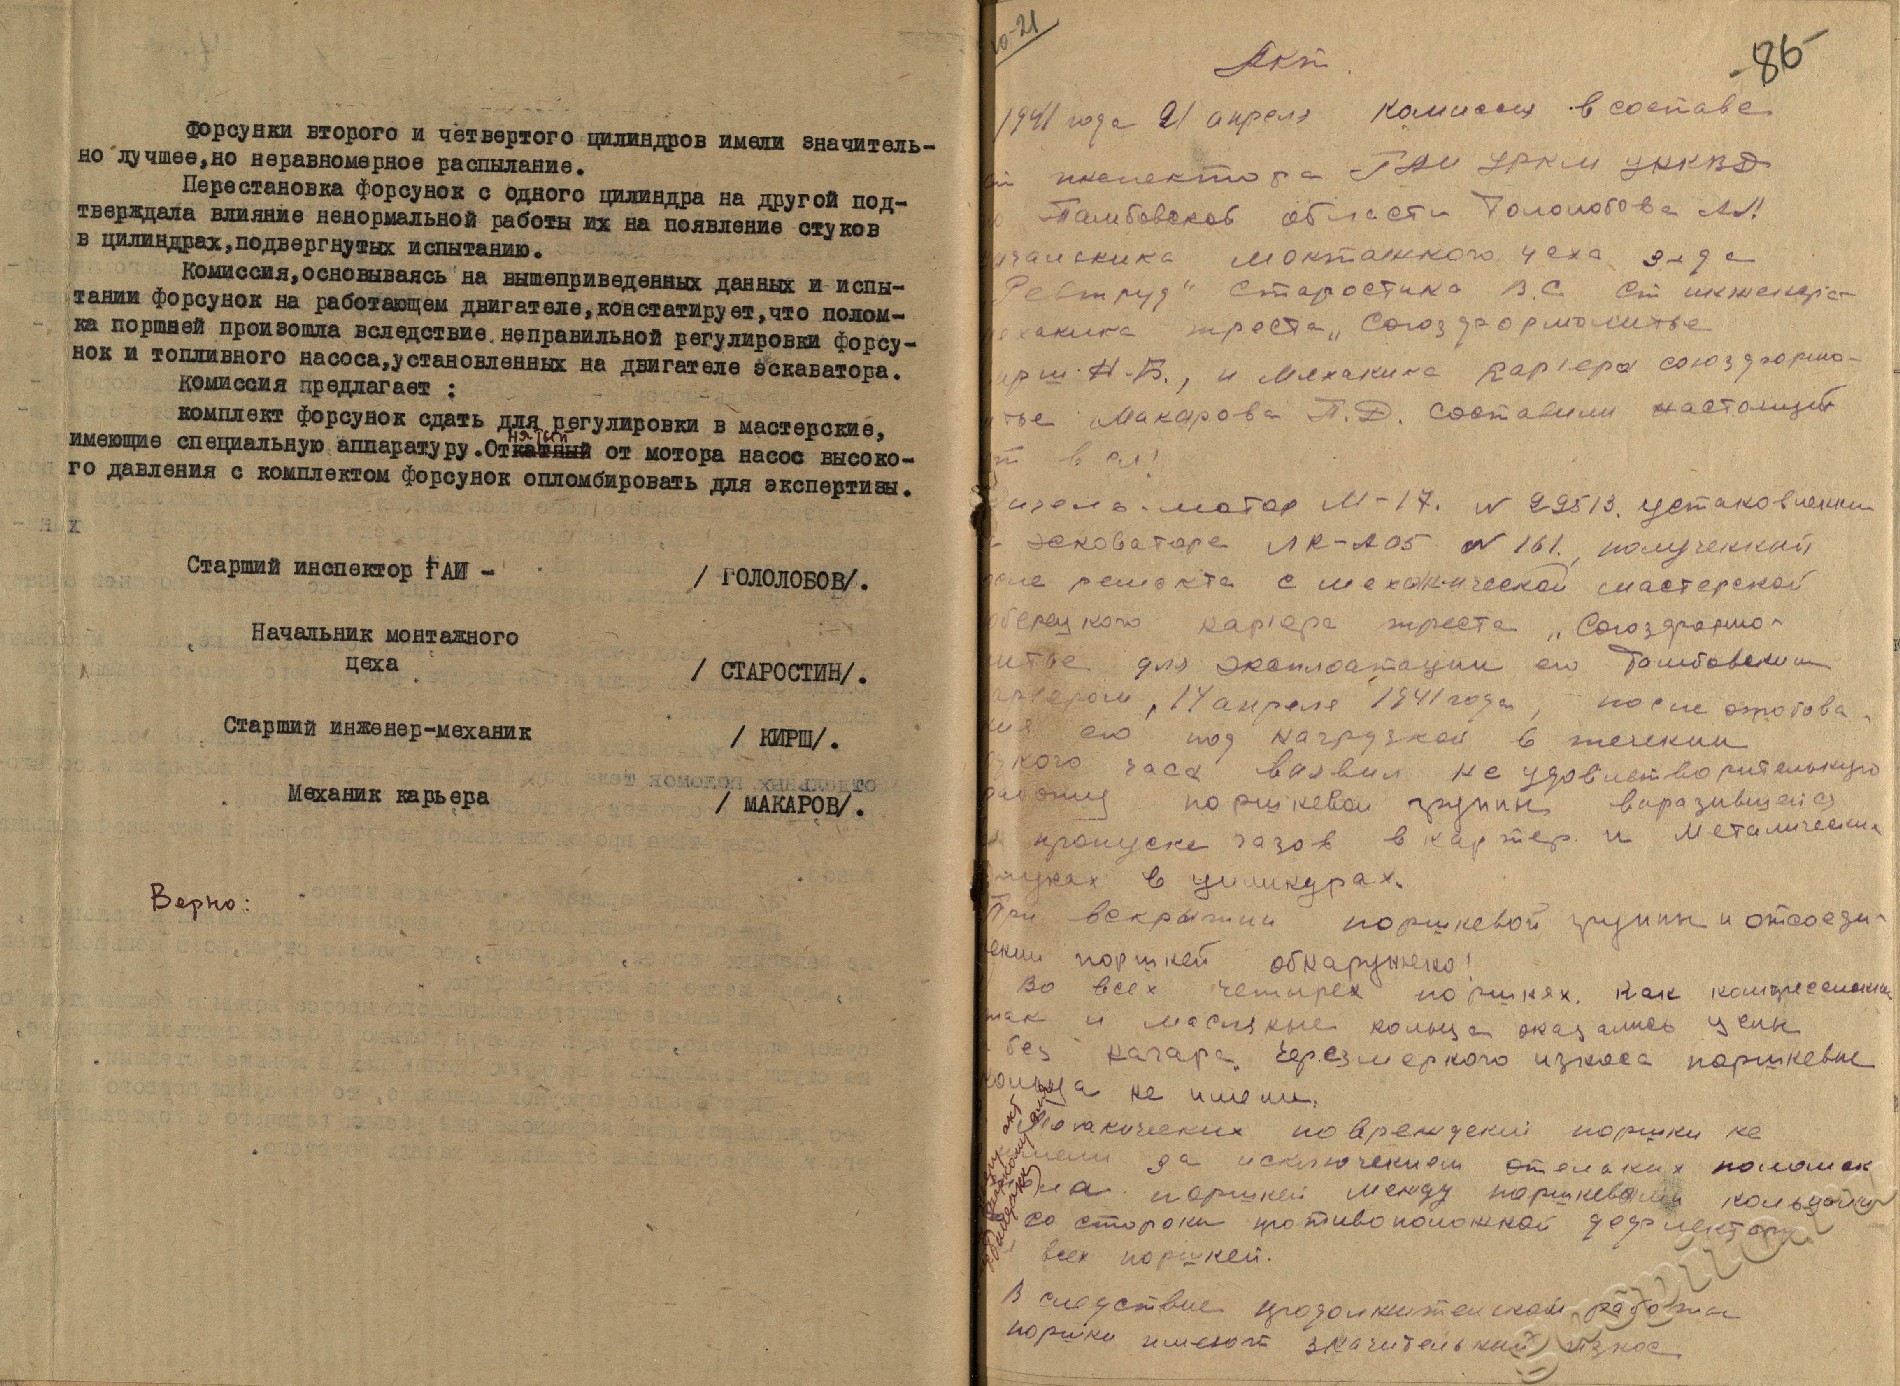 Форсунки второго и четвертого цилиндров имели значитель-
но лучшее,но неравномерное распылание.
Перестановка форсунок с одного цилиндра на другой под-
тверждала влияние ненормальной работы их на появление стуков
в цилиндрах,подвергнутых испытанию.
Комиссия,основываясь на вышеприведенных данных и испы-
тании форсунок на работающем двигателе,констатирует,что полом-
ка поршней произошла вследствие неправильной регулировки форсу-
нок и топливного насоса,установленных на двигателе эскаватора.
Комиссия предлагает :
комплект форсунок сдать для регулировки в мастерские,
нятый
имеющие специальную аппаратуру.Откатный от мотора насос высоко-
го давления с комплектом форсунок опломбировать для экспертизы.
Старший инспектор ГАИ - / ГОЛОЛОБОВ/.
Начальник монтажного
цеха / СТАРОСТИН/.
Старший инженер-механик / КИРШ/.
Механик карьера / МАКАРОВ/.
Верно:
10-21
-86-
Акт.
1941 года 21 апреля комиссия в составе
инспектора ГАИ УРКМ УНКВД
Тамбовской области Гололобова
монтажного цеха з-да
"Ревтруд" Старостина В.С ст инженера-
механика треста „Союзформолитье
Кирш Н.В., и механика карьера союзформо-
литье Макарова П.Д. составили настоящий
Дизель-мотор М-17. N 22513. установленный
эсковаторе ЛК-А05 N 161., полученный
после ремонта с механической мастерской
карьера треста „Союзформо-
литье для эксплоатации его Тамбовским
карьером, 14 апреля 1941 года, после опробова-
ния его под нагрузкой в течении
часа выявил не удовлетворительную
работу поршневой группы выразившейся
пропуске газов в картер и металических
стуках в цилиндрах.
При вскрытии поршневой группы и отсоеди-
нении поршней обнаружено!
Во всех четырех поршнях, как компресионные
так и масляные кольца оказались целы
без нагара, черезмерного износа поршневые
кольца не имели.
Механических повреждений поршни не
имели за исключением отельных поломок
на поршней между поршневыми кольцами
со стороны противоположной дефлектору
всех поршней.
В следствие продолжительной работы
поршни имеют значительный износ